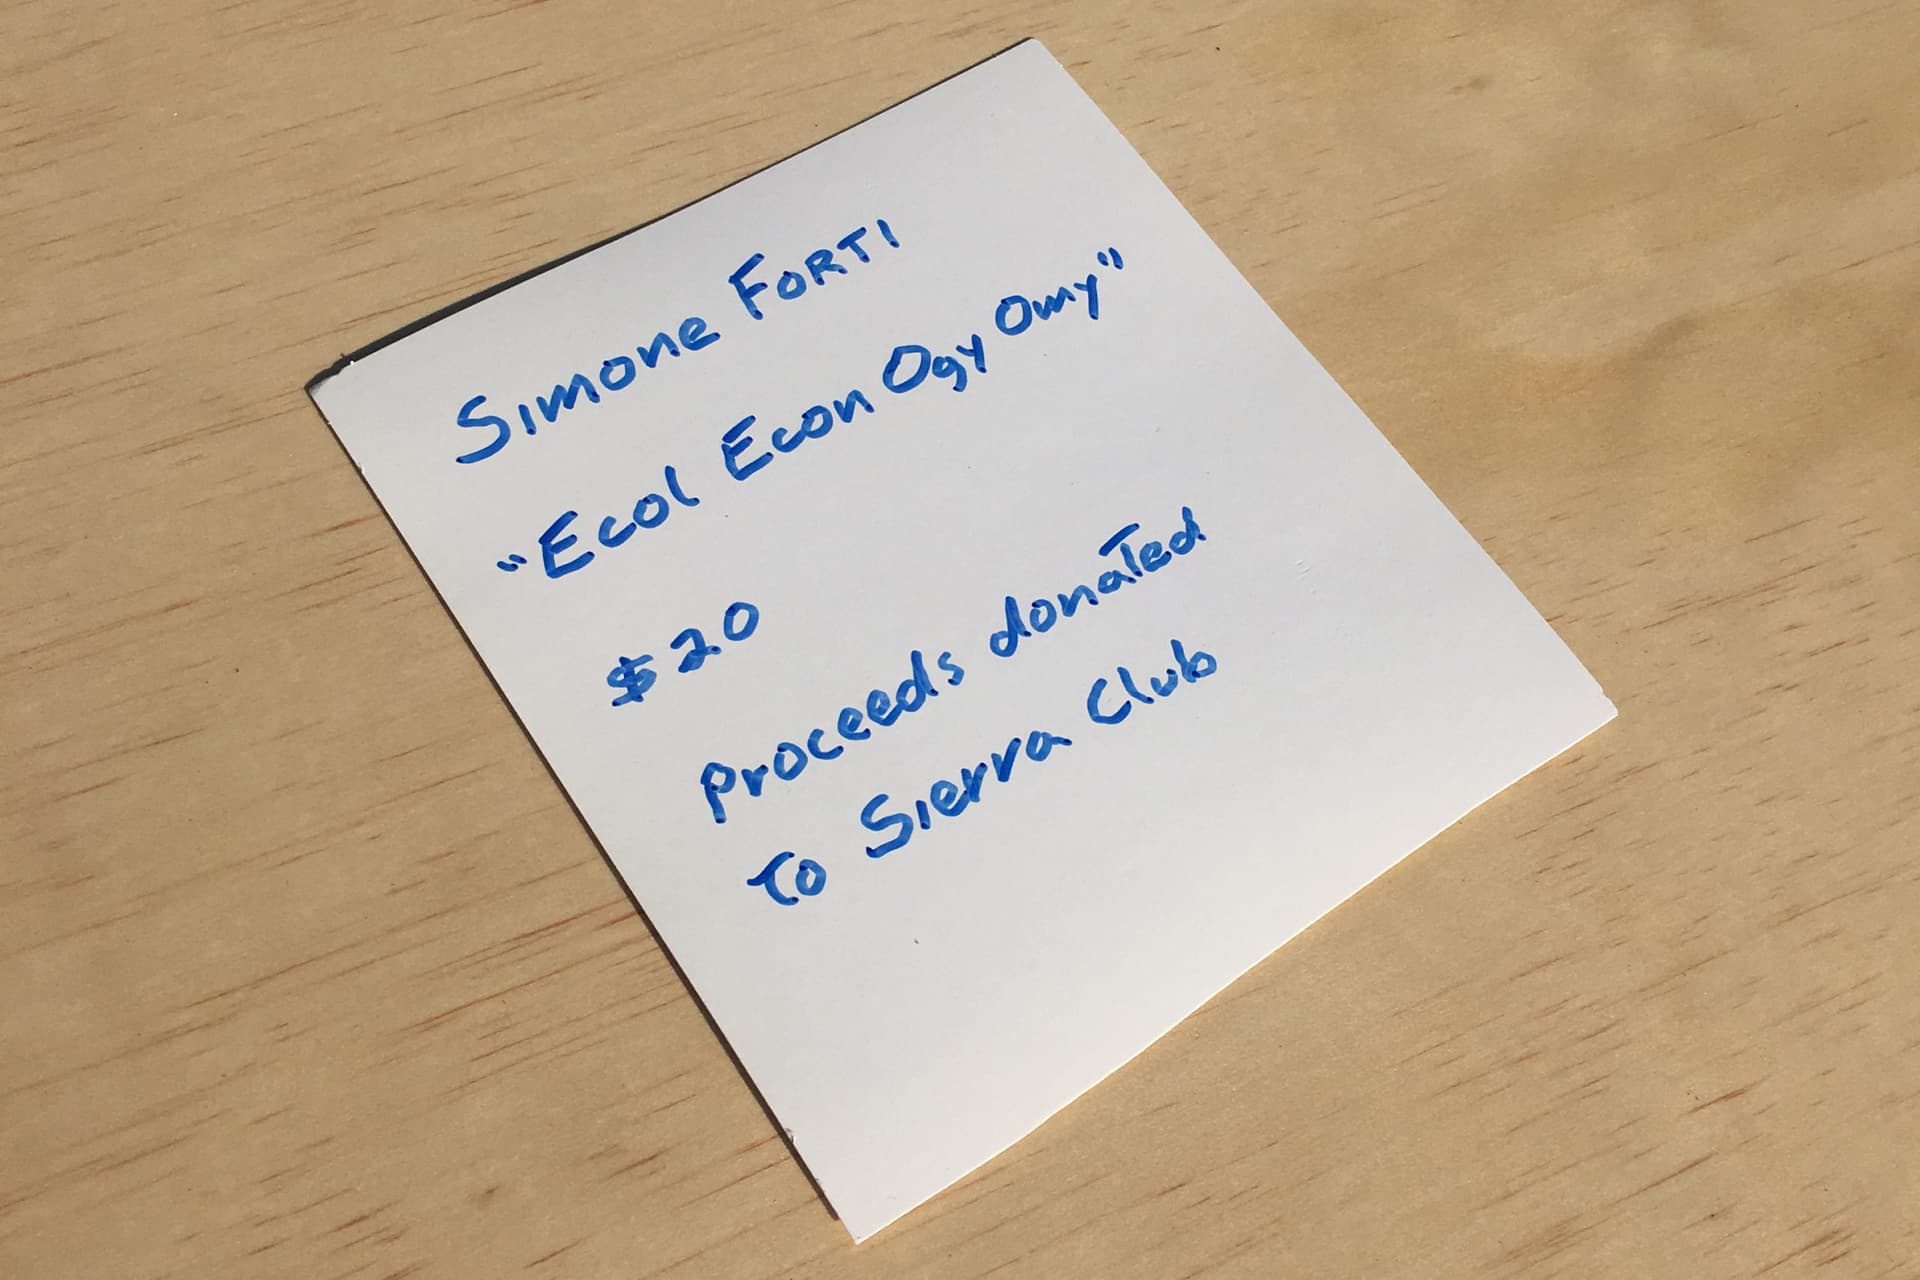 Simone Forti
"Ecol Econ Ogy Omy"
$20
proceeds donated
To Sierra Club